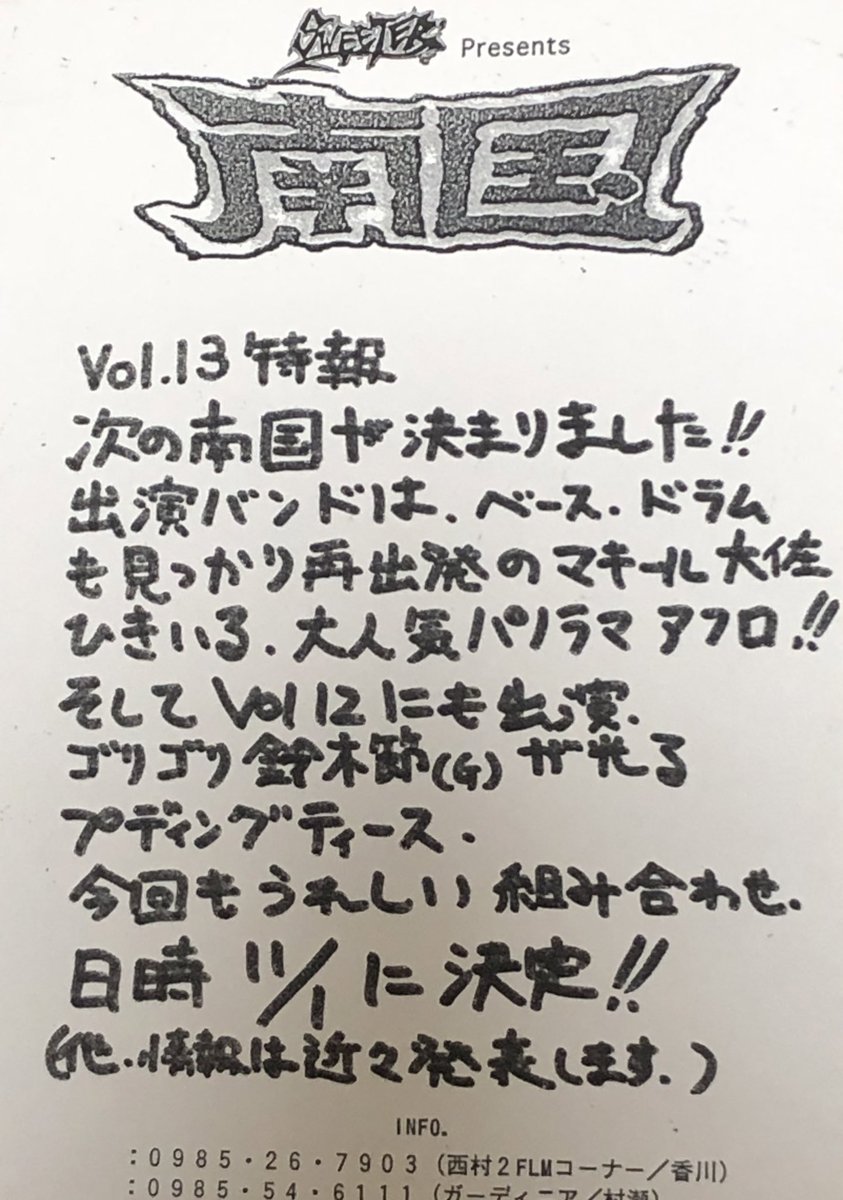 SWEETER Presents
南国
Vol.13 特報
次の南国が決まりました!!
出演バンドは、ベース・ドラム
も見つかり再出発のマキール大佐
ひきいる、大人気パノラマアフロ!!
そしてVol 12にも出演、
ゴリゴリ鈴木節(G)が光る
プディングティース、
今回もうれしい組み合わせ、
日時 11/1に決定!!
(他、情報は近々発表します。)
INFO.
:0985・26・7903(西村2FLMコーナー/香川)
:0985・54・6111(ガーディニア/村瀬)